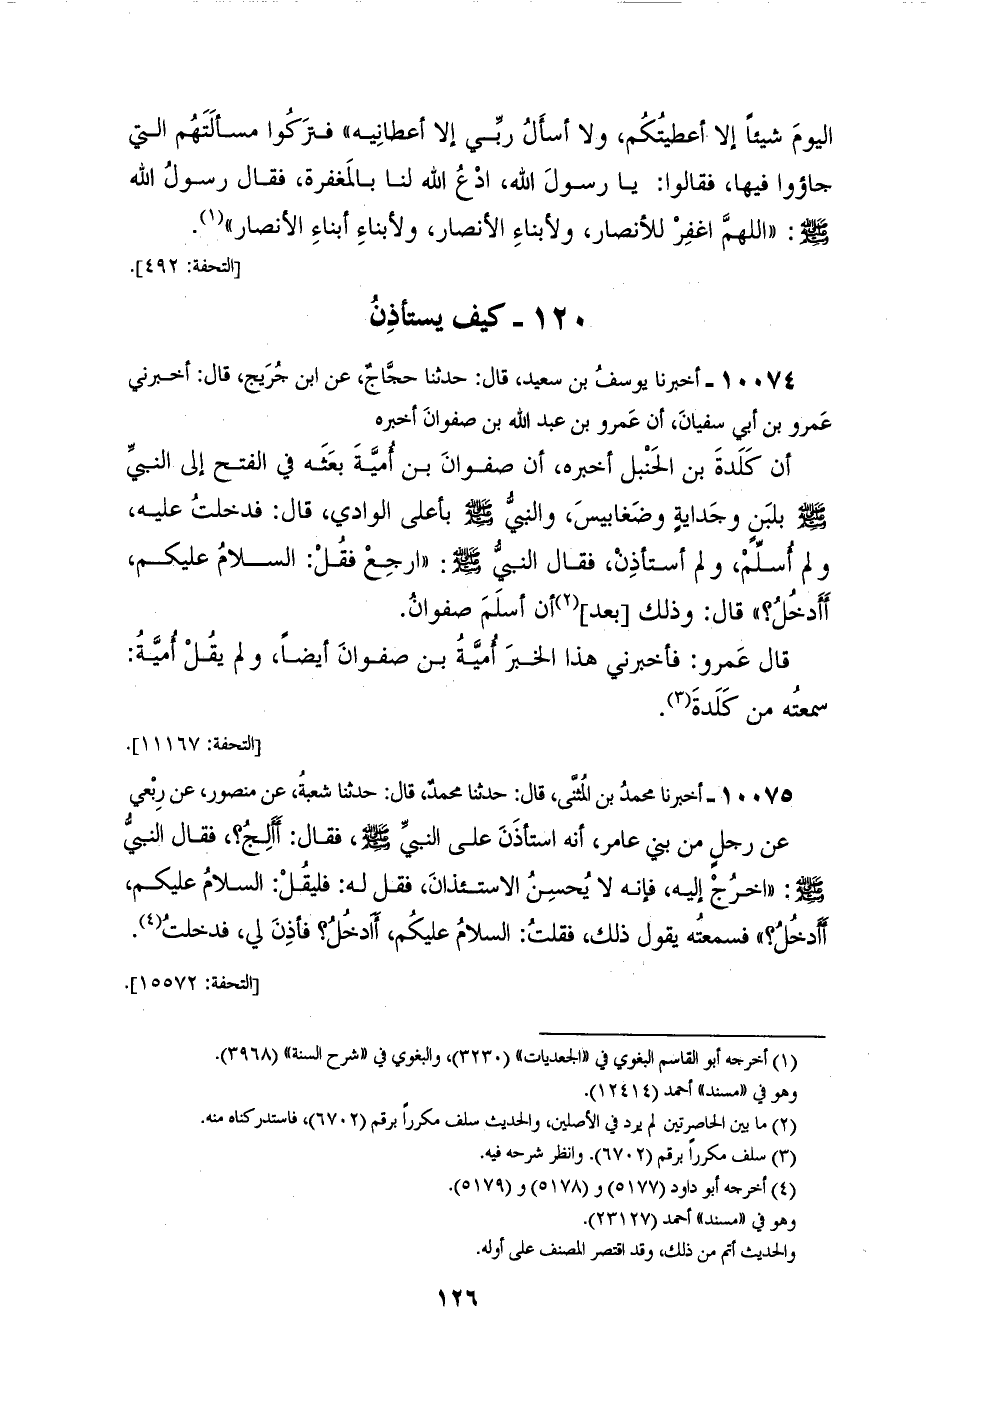 اليومَ شيئاً إلا أعطيتُكُم، ولا أسأَلُ ربِّي إلا أعطانِيه» فتَرَكُوا مسألَتَهُم التي
جاؤوا فيها، فقالوا: يا رسولَ الله، ادْعُ الله لنا بالمَغفرة، فقال رسولُ الله
ﷺ: «اللهمَّ اغفِرْ للأنصار، ولأبناءِ الأنصار، ولأبناءِ أبناءِ الأنصار»(١).
[التحفة: ٤٩٢].
١٢٠ ـ كيف يستأذِنُ
١٠٠٧٤ ـ أخبرنا يوسفُ بن سعيد، قال: حدثنا حجَّاجٌ، عن ابن جُرَيج، قال: أخبرني
عَمرو بن أبي سفيانَ، أن عَمرو بن عبد الله بن صفوانَ أخبره
أن كَلَدةَ بن الحَنْبل أخبره، أن صفوانَ بن أُميَّةَ بعَثَه في الفتح إلى النبيِّ
ﷺ بلبَنٍ وجَدايةٍ وضَغابيسَ، والنبيُّ ﷺ بأعلى الوادي، قال: فدخلتُ عليه،
ولم أُسلِّمْ، ولم أستأذِنْ، فقال النبيُّ ﷺ: «ارجِعْ فقُلْ: السلامُ عليكم،
أَأَدخُلُ؟» قال: وذلك [بعد](٢)أن أسلَمَ صفوانُ.
قال عَمرو: فأخبرني هذا الخبرَ أُميَّةُ بن صفوانَ أيضاً، ولم يقُلْ أُميَّةُ:
سمعتُه من كَلَدةَ(٣).
[التحفة: ١١١٦٧].
١٠٠٧٥ ـ أخبرنا محمدُ بن المُثنَّى، قال: حدثنا محمدٌ، قال: حدثنا شعبةُ، عن منصور، عن رِبْعي
عن رجلٍ من بني عامر، أنه استأذَنَ على النبيِّ ﷺ، فقال: أَأَلِجُ؟، فقال النبيُّ
ﷺ: «اخرُجْ إليه، فإنه لا يُحسِنُ الاستئذانَ، فقل له: فليقُلْ: السلامُ عليكم،
أَأَدخُلُ؟» فسمعتُه يقول ذلك، فقلتُ: السلامُ عليكُم، أَأَدخُلُ؟ فأذِنَ لي، فدخلتُ(٤).
[التحفة: ١٥٥٧٢].
(١) أخرجه أبو القاسم البغوي في «الجعديات» (٣٢٣٠)، والبغوي في «شرح السنة» (٣٩٦٨).
وهو في «مسند» أحمد (١٢٤١٤).
(٢) ما بين الحاصرتين لم يرد في الأصلين، والحديث سلف مكرراً برقم (٦٧٠٢)، فاستدركناه منه.
(٣) سلف مكرراً برقم (٦٧٠٢). وانظر شرحه فيه.
(٤) أخرجه أبو داود (٥١٧٧) و (٥١٧٨) و (٥١٧٩).
وهو في «مسند» أحمد (٢٣١٢٧).
والحديث أتم من ذلك، وقد اقتصر المصنف على أوله.
١٢٦